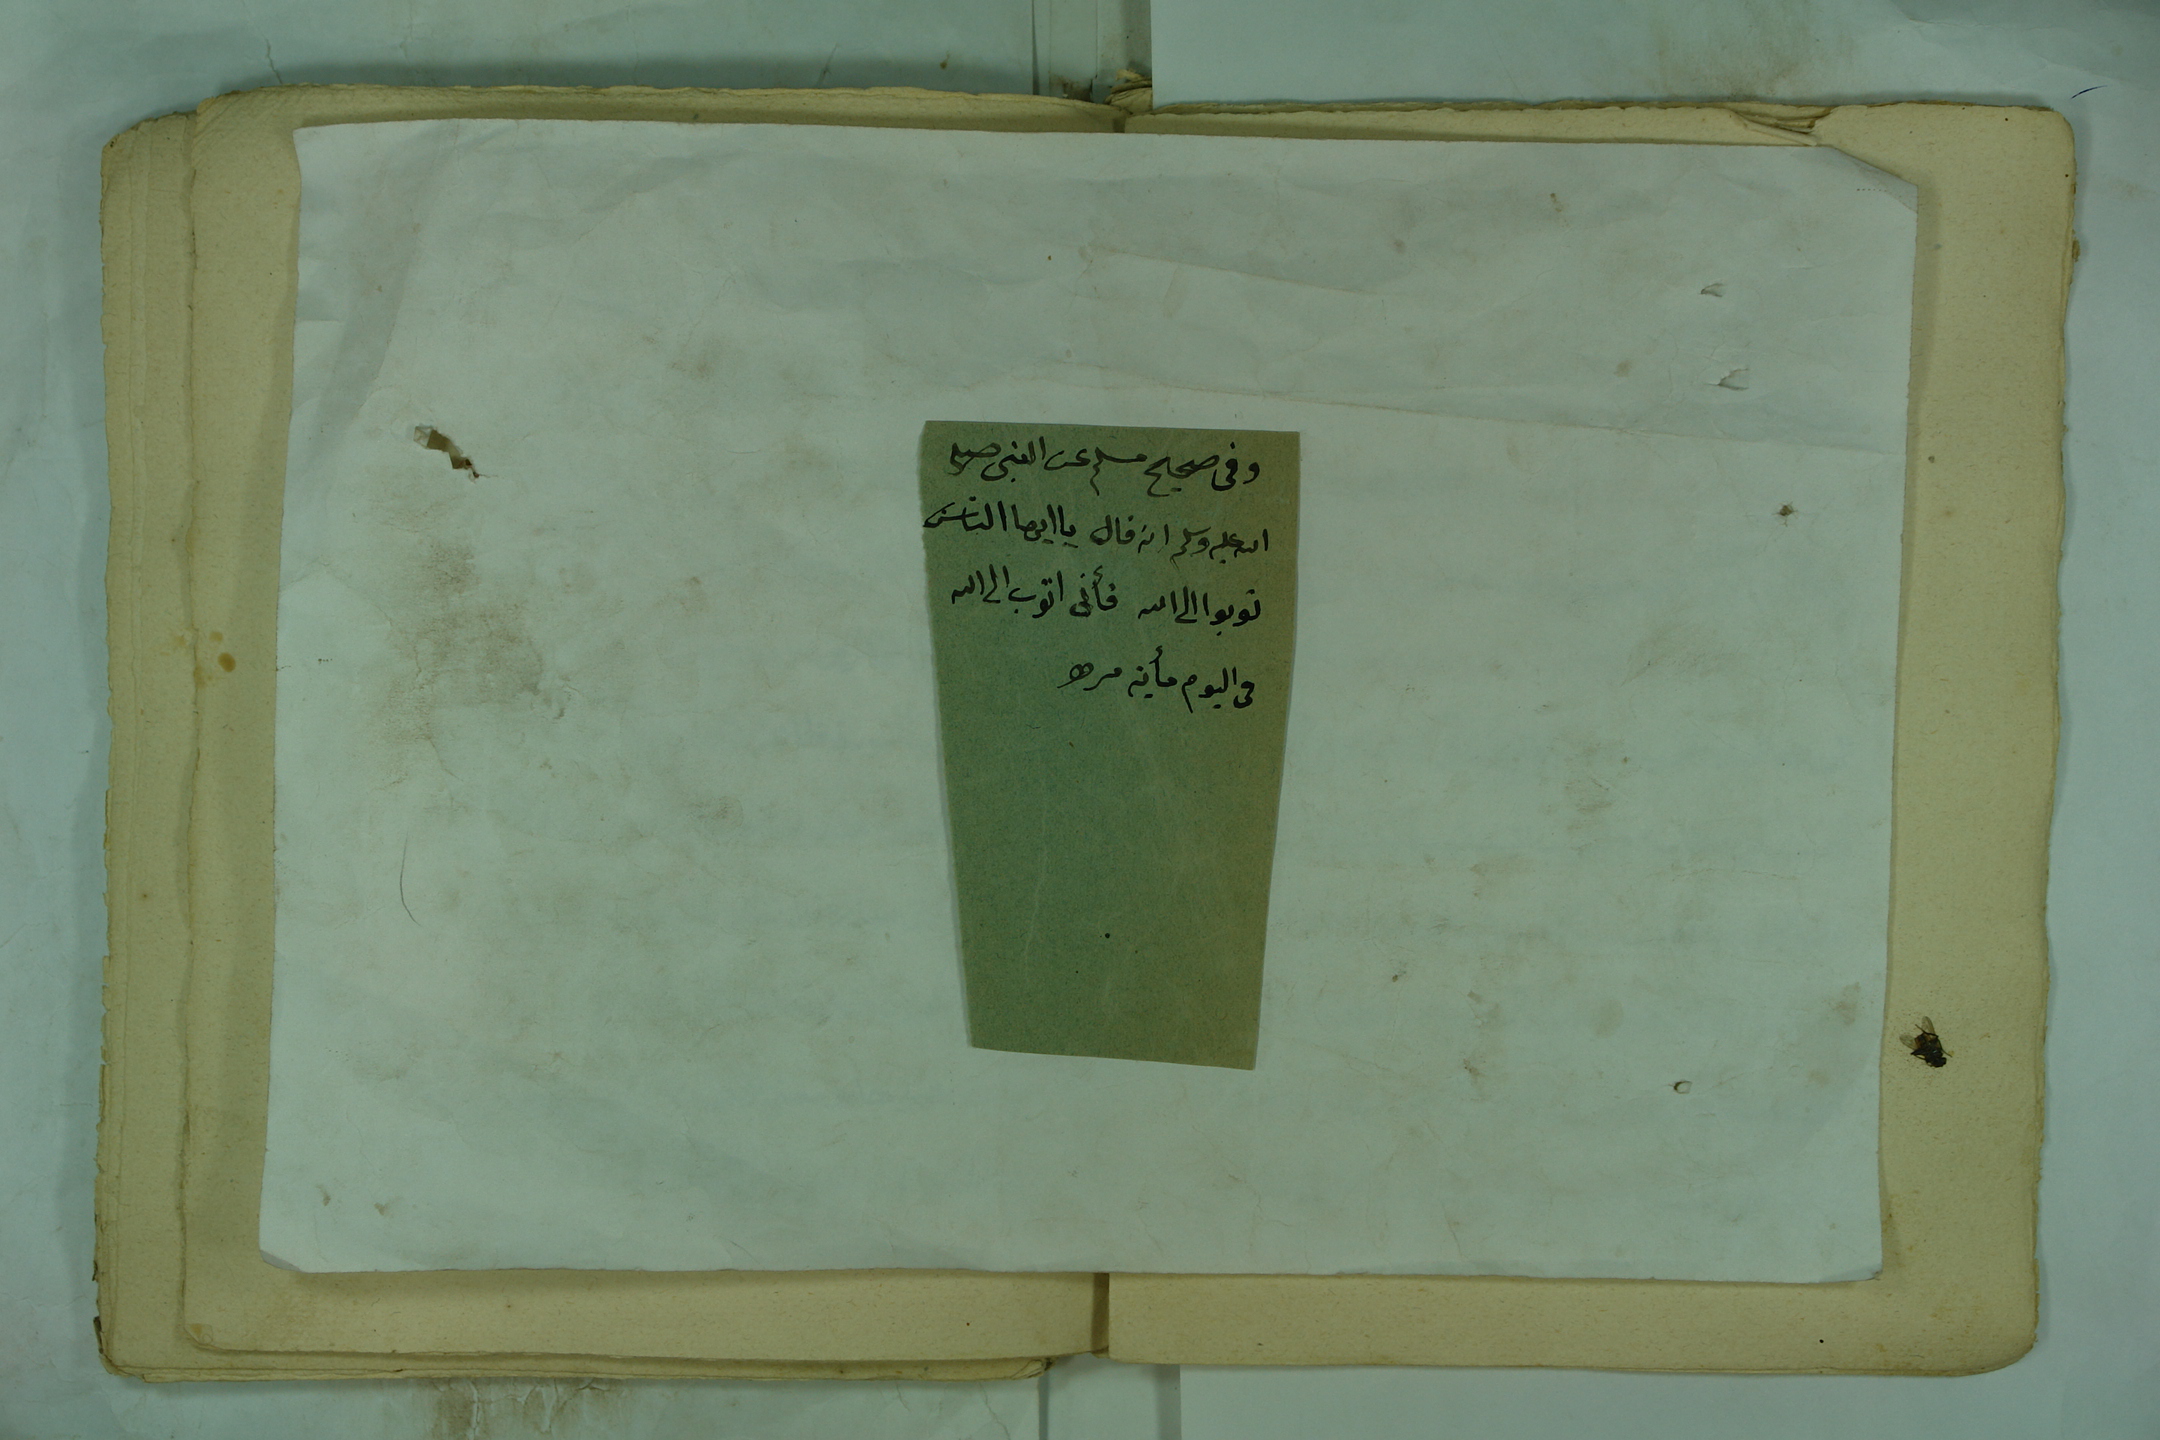 وفى صحيح مسلم عن النبى صلى
الله عليه وسلم انه قال يا ايها الناس
توبوا الى الله فأنى اتوب الى الله
فى اليوم مأية مره